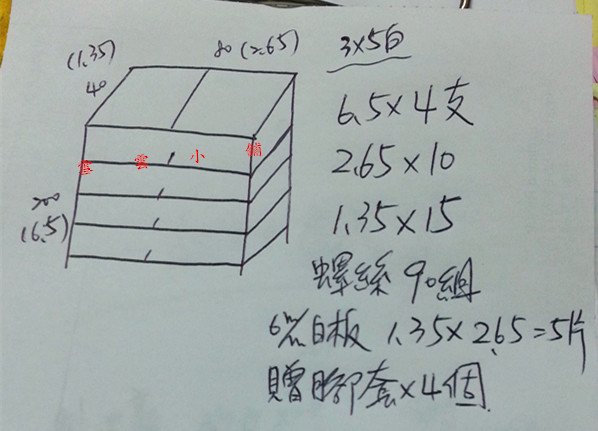 (1.35)
40
80 (2.65)
200
(6.5)
雲 小 舖
3x5白
6.5x4支
2.65x10
1.35x15
螺絲 90組
白板 1.35x2.65=5片
贈腳套x4個